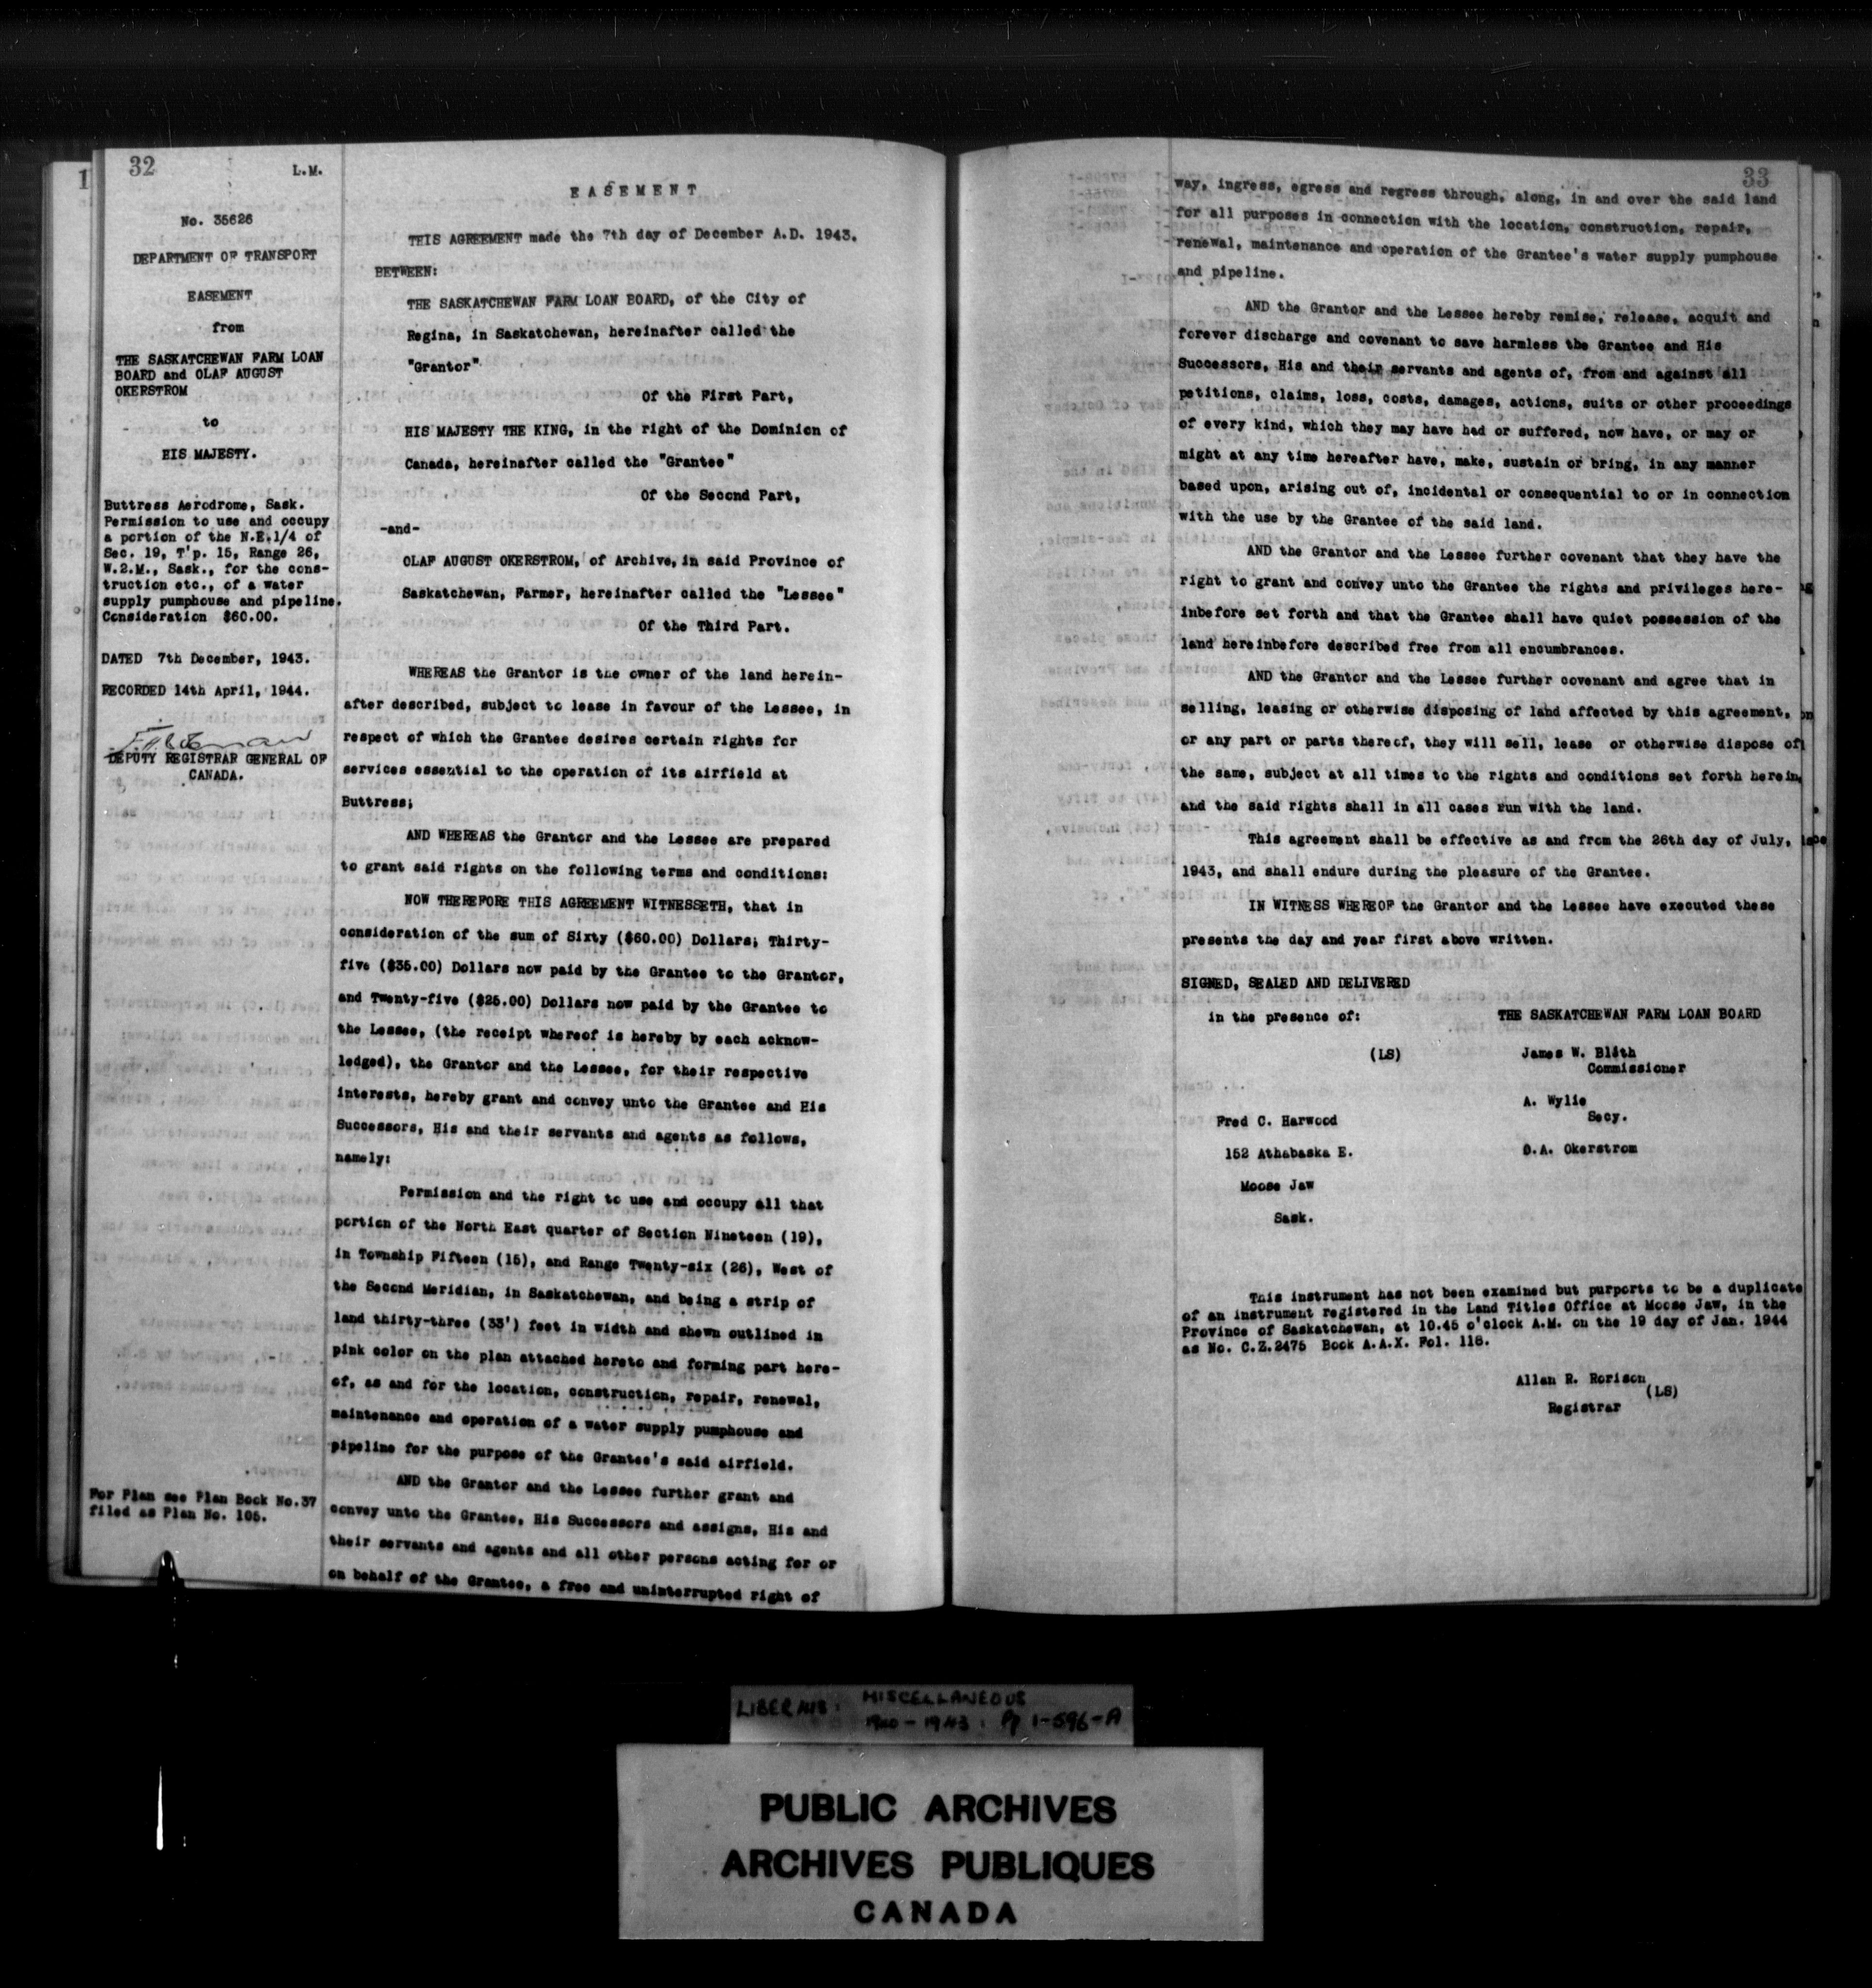 32
L.M.
No. 35626
DEPARTMENT OF TRANSPORT
EASEMENT
from
THE SASKATCHEWAN FARM LOAN
BOARD and OLAF AUGUST
OKERSTROM
to
HIS MAJESTY.
Buttress Aerodrome, Sask.
Permission to use and occupy
a portion of the N.E.1/4 of
Sec. 19, T'p. 15, Range 26,
W.2.M., Sask., for the cons-
truction etc., of a water
supply pumphouse and pipeline.
Consideration $60.00.
DATED 7th December, 1943.
RECORDED 14th April, 1944.
DEPUTY REGISTRAR GENERAL OF
CANADA.
For Plan see Plan Book No.37
filed as Plan No. 105.
EASEMENT
THIS AGREEMENT made the 7th day of December A.D. 1943.
BETWEEN:
THE SASKATCHEWAN FARM LOAN BOARD, of the City of
Regina, in Saskatchewan, hereinafter called the
"Grantor"
Of the First Part,
HIS MAJESTY THE KING, in the right of the Dominion of
Canada, hereinafter called the "Grantee"
Of the Second Part,
-and-
OLAF AUGUST OKERSTROM, of Archive, in said Province of
Saskatchewan, Farmer, hereinafter called the "Lessee"
Of the Third Part.
WHEREAS the Grantor is the owner of the land herein-
after described, subject to lease in favour of the Lessee, in
respect of which the Grantee desires certain rights for
services essential to the operation of its airfield at
Buttress;
AND WHEREAS the Grantor and the Lessee are prepared
to grant said rights on the following terms and conditions:
NOW THEREFORE THIS AGREEMENT WITNESSETH, that in
consideration of the sum of Sixty ($60.00) Dollars; Thirty-
five ($35.00) Dollars now paid by the Grantee to the Grantor,
and Twenty-five ($25.00) Dollars now paid by the Grantee to
the Lessee, (the receipt whereof is hereby by each acknow-
ledged), the Grantor and the Lessee, for their respective
interests, hereby grant and convey unto the Grantee and His
Successors, His and their servants and agents as follows,
namely:
Permission and the right to use and occupy all that
portion of the North East quarter of Section Nineteen (19),
in Township Fifteen (15), and Range Twenty-six (26), West of
the Second Meridian, in Saskatchewan, and being a strip of
land thirty-three (33') feet in width and shewn outlined in
pink color on the plan attached hereto and forming part here-
of, as and for the location, construction, repair, renewal,
maintenance and operation of a water supply pumphouse and
pipeline for the purpose of the Grantee's said airfield.
AND the Grantor and the Lessee further grant and
convey unto the Grantee, His Successors and assigns, His and
their servants and agents and all other persons acting for or
on behalf of the Grantee, a free and uninterrupted right of
33
way, ingress, egress and regress through, along, in and over the said land
for all purposes in connection with the location, construction, repair,
renewal, maintenance and operation of the Grantee's water supply pumphouse
and pipeline.
AND the Grantor and the Lessee hereby remise, release, acquit and
forever discharge and covenant to save harmless the Grantee and His
Successors, His and their servants and agents of, from and against all
petitions, claims, loss, costs, damages, actions, suits or other proceedings
of every kind, which they may have had or suffered, now have, or may or
might at any time hereafter have, make, sustain or bring, in any manner
based upon, arising out of, incidental or consequential to or in connection
with the use by the Grantee of the said land.
AND the Grantor and the Lessee further covenant that they have the
right to grant and convey unto the Grantee the rights and privileges here-
inbefore set forth and that the Grantee shall have quiet possession of the
land hereinbefore described free from all encumbrances.
AND the Grantor and the Lessee further covenant and agree that in
selling, leasing or otherwise disposing of land affected by this agreement,
or any part or parts thereof, they will sell, lease or otherwise dispose of
the same, subject at all times to the rights and conditions set forth herein,
and the said rights shall in all cases run with the land.
This agreement shall be effective as and from the 26th day of July,
1943, and shall endure during the pleasure of the Grantee.
IN WITNESS WHEREOF the Grantor and the Lessee have executed these
presents the day and year first above written.
SIGNED, SEALED AND DELIVERED
in the presence of:
THE SASKATCHEWAN FARM LOAN BOARD
(LS)
James W. Blath
Commissioner
A. Wylie
Secy.
Fred C. Harwood
152 Athabaska E.
O.A. Okerstrom
Moose Jaw
Sask.
This instrument has not been examined but purports to be a duplicate
of an instrument registered in the Land Titles Office at Moose Jaw, in the
Province of Saskatchewan, at 10.45 o'clock A.M. on the 19 day of Jan. 1944
as No. C.Z.2475 Book A.A.X. Fol. 118.
Allan R. Rorison
(LS)
Registrar
LIBER 1418: MISCELLANEOUS
1940-1943: Pp 1-596-A
PUBLIC ARCHIVES
ARCHIVES PUBLIQUES
CANADA